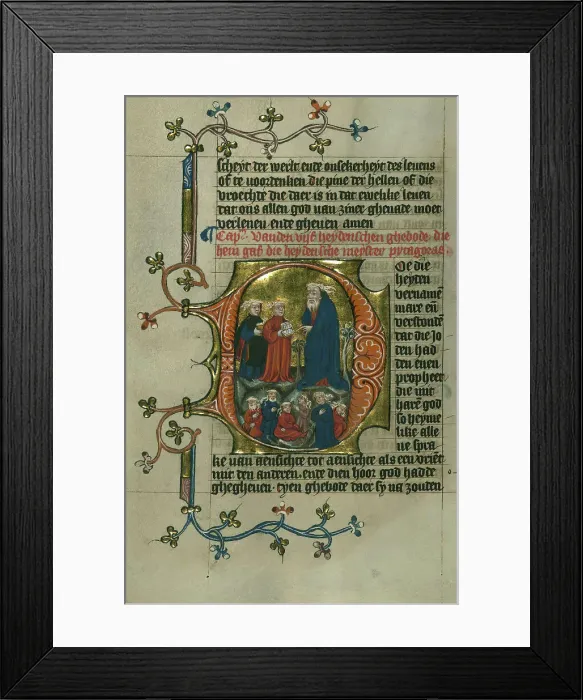 scheyt der werlt ende onsekerheyt des leuens
oft te voordenken die pine der hellen oft die
vroechte die daer is in dat ewelike leuen
dat ons allen god van zijnre ghenade moet
verlenen ende gheuen amen
Cap. Vanden vijf heydenschen ghebode die
hem gaf die heydensche meyster pytagoras
Oe die
heyten
vername
mare en
verstonde
dat die Jo
den had
den enen
propheet
die mit
hare god
so heyme
like alle
ne spra
ke van aensichte tot aensichte als een vrient
mit den anderen ende dien hoor god hadde
ghegheuen tyen ghebode daer sy na zouten